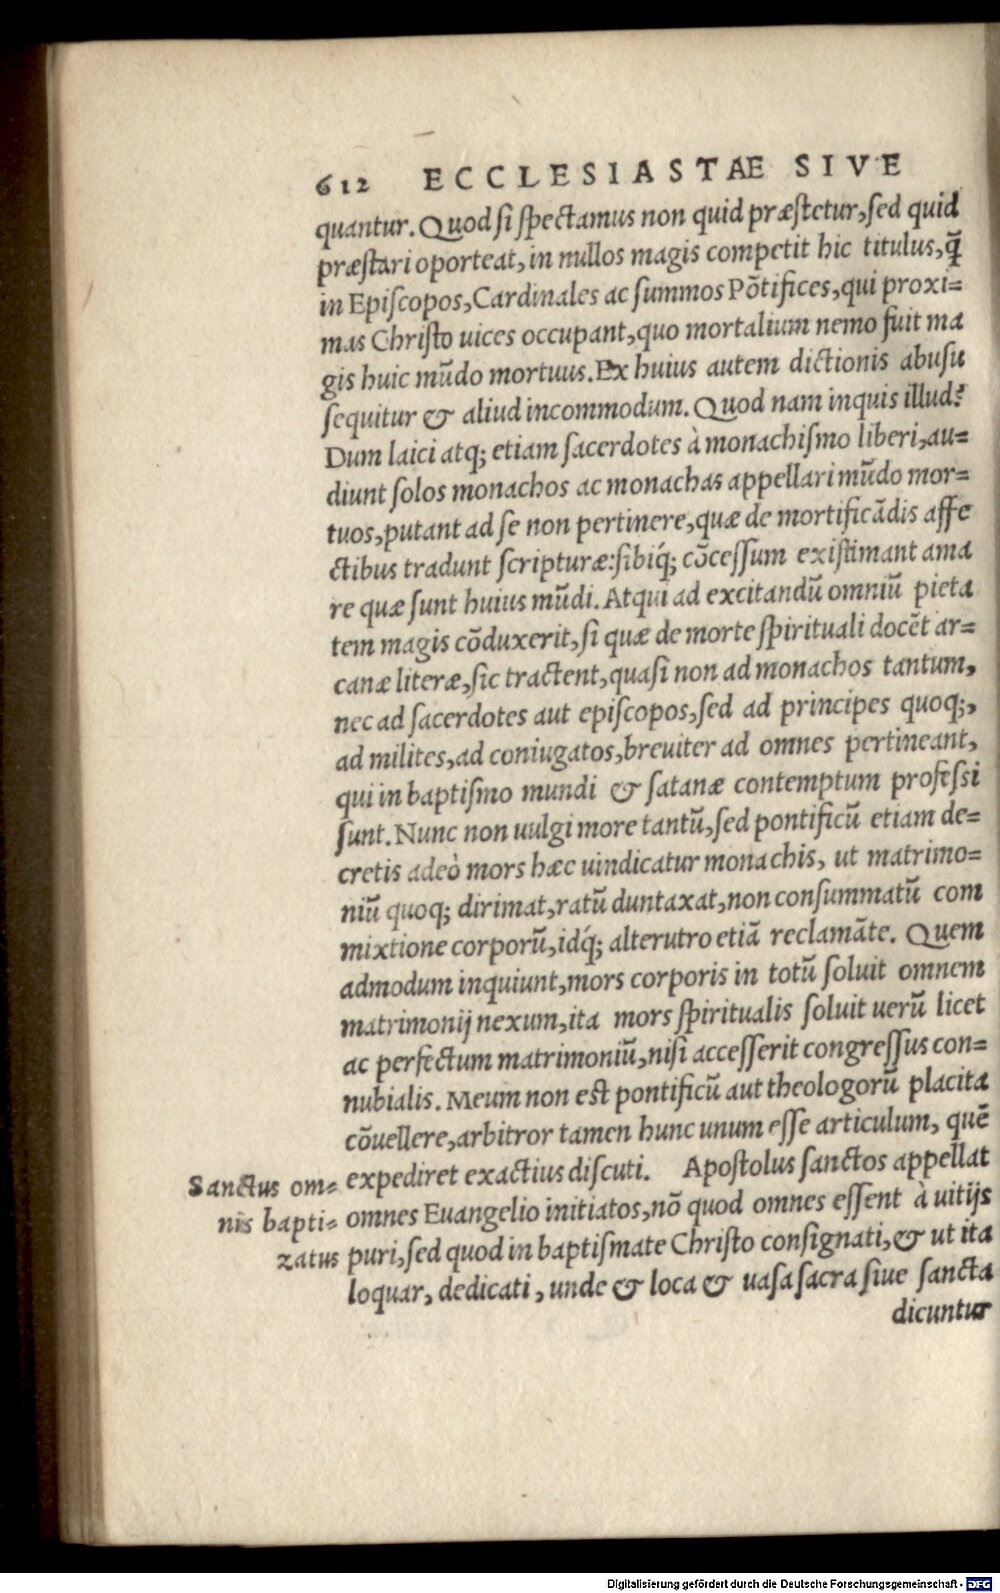 612 ECCLESIASTAE SIVE
quantur. Quod si spectamus non quid præstetur, sed quid
præstari oporteat, in nullos magis competit hic titulus, q̃
in Episcopos, Cardinales ac summos Põtifices, qui proxi=
mas Christo uices occupant, quo mortalium nemo fuit ma
gis huic mũdo mortuus. Ex huius autem dictionis abusu
sequitur & aliud incommodum. Quod nam inquis illud?
Dum laici atq; etiam sacerdotes à monachismo liberi, au=
diunt solos monachos ac monachas appellari mũdo mor=
tuos, putant ad se non pertinere, quæ de mortificãdis affe
ctibus tradunt scripturæ: sibiq́; cõcessum existimant ama
re quæ sunt huius mũdi. Atqui ad excitandũ omniũ pieta
tem magis cõduxerit, si quæ de morte spirituali docẽt ar=
canæ literæ, sic tractent, quasi non ad monachos tantum,
nec ad sacerdotes aut episcopos, sed ad principes quoq;,
ad milites, ad coniugatos, breuiter ad omnes pertineant,
qui in baptismo mundi & satanæ contemptum professi
sunt. Nunc non uulgi more tantũ, sed pontificũ etiam de=
cretis adeò mors hæc uindicatur monachis, ut matrimo=
niũ quoq; dirimat, ratũ duntaxat, non consummatũ com
mixtione corporũ, idq́; alterutro etiã reclamãte. Quem
admodum inquiunt, mors corporis in totũ soluit omnem
matrimonij nexum, ita mors spiritualis soluit uerũ licet
ac perfectum matrimoniũ, nisi accesserit congressus con=
nubialis. Meum non est pontificũ aut theologorũ placita
cõuellere, arbitror tamen hunc unum esse articulum, quẽ
expediret exactius discuti. Apostolus sanctos appellat
omnes Euangelio initiatos, nõ quod omnes essent à uitijs
puri, sed quod in baptismate Christo consignati, & ut ita
loquar, dedicati, unde & loca & uasa sacra siue sancta
dicuntur
Sanctus om=
nis bapti=
zatus
Digitalisierung gefördert durch die Deutsche Forschungsgemeinschaft - DFG